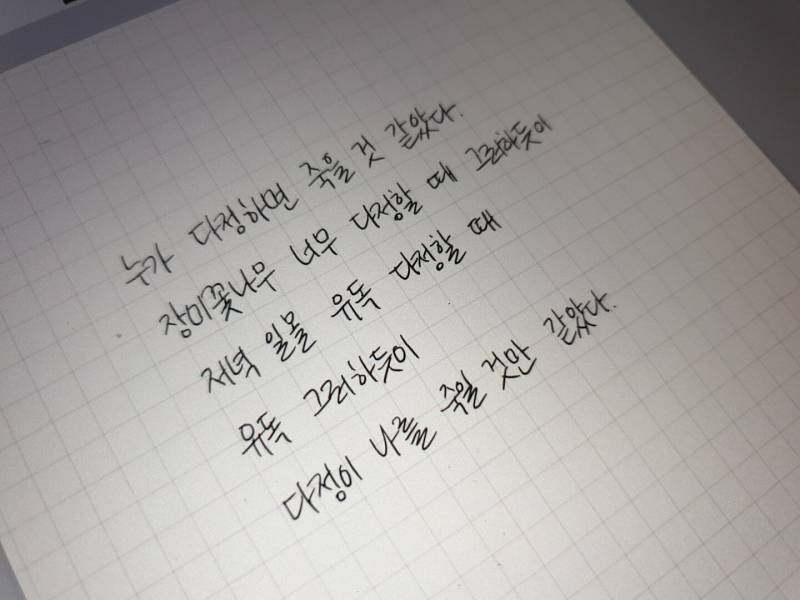 누가 다정하면 죽을 것 같았다.
장미꽃나무 너무 다정할 때 그러하듯이
저녁 일몰 유독 다정할 때
유독 그러하듯이
다정이 나를 죽일 것만 같았다.